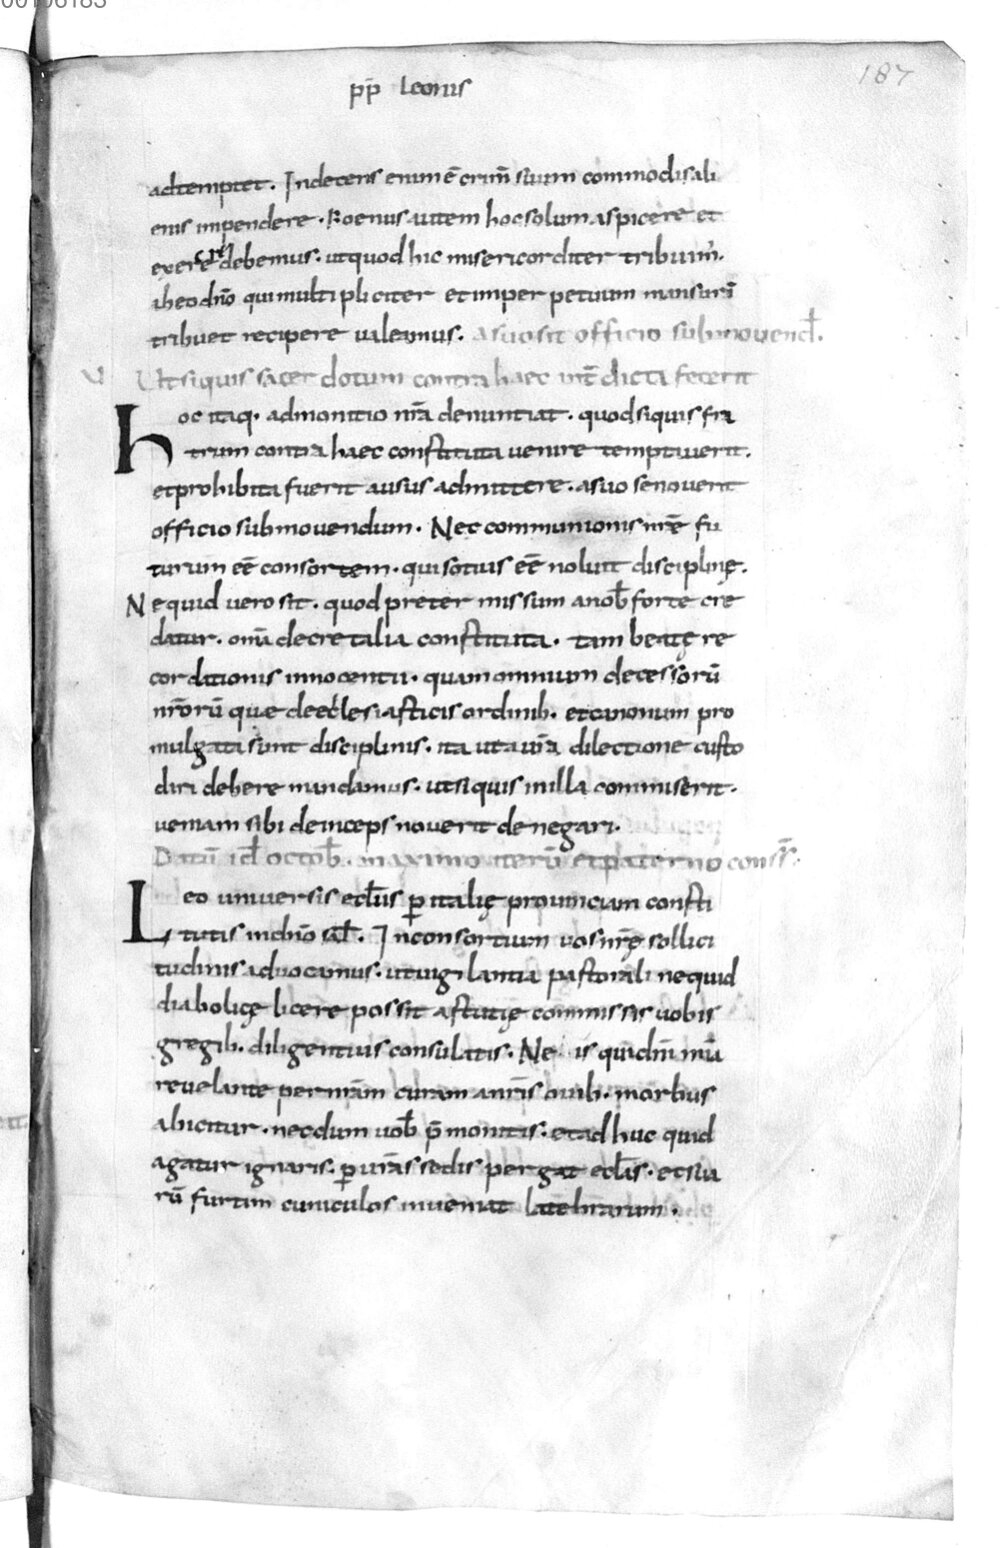 00106183
187
pp̄ Leonis
adtemptet. Indecens enim ē crim̄ suum commodis ali
enis inpendere. Foenus autem hoc solum aspicere et
exercere debemus. ut quod hic misericorditer tribuim̄.
ab eo dn̄o qui multipliciter et inperpetuum mansura
tribuet recipere valeamus. a suo sit officio submovend̄.
V Ut si quis sacerdotum contra haec interdicta fecerit
Hoc itaq. admonitio nr̄a denuntiat. quod si quis fra
trum contra haec constituta venire temptaverit.
et prohibita fuerit ausus admittere. a suo se noverit
officio submovendum. Nec communionis nr̄e fu
turum eē consortem. qui sotius eē noluit discipline.
Ne quid vero sit. quod preter missum a nob̄ forte cre
datur. om̄a decretalia constituta. tam beatę re
cordationis innocentii. quam omnium decessorū
nr̄orū que de ecclesiasticis ordinib. et canonum pro
mulgata sunt disciplinis. ita ut a vr̄a dilectione custo
diri debere mandamus. ut si quis in illa commiserit.
veniam sibi deinceps noverit denegari.
Datū id̄ octob̄. maximo iterū et paterno conss̄.
Leo universis ecl̄iis p italię provinciam consti
tutis in dn̄o sal̄. In consortium vos nr̄ę sollici
tudinis advocamus. ut vigilantia pastorali ne quid
diabolicę licere possit astutię commissis vobis
gregib. diligentius consulatis. Ne is qui dn̄i mīa
revelante per nr̄am curam a nr̄is ovib. morbus
abicitur. necdum vob̄ p̄monitis. et adhuc quid
agatur ignaris. p vr̄as se dispergat ecl̄ias. et sua
rū furtim cuniculos inveniat latebrarum.